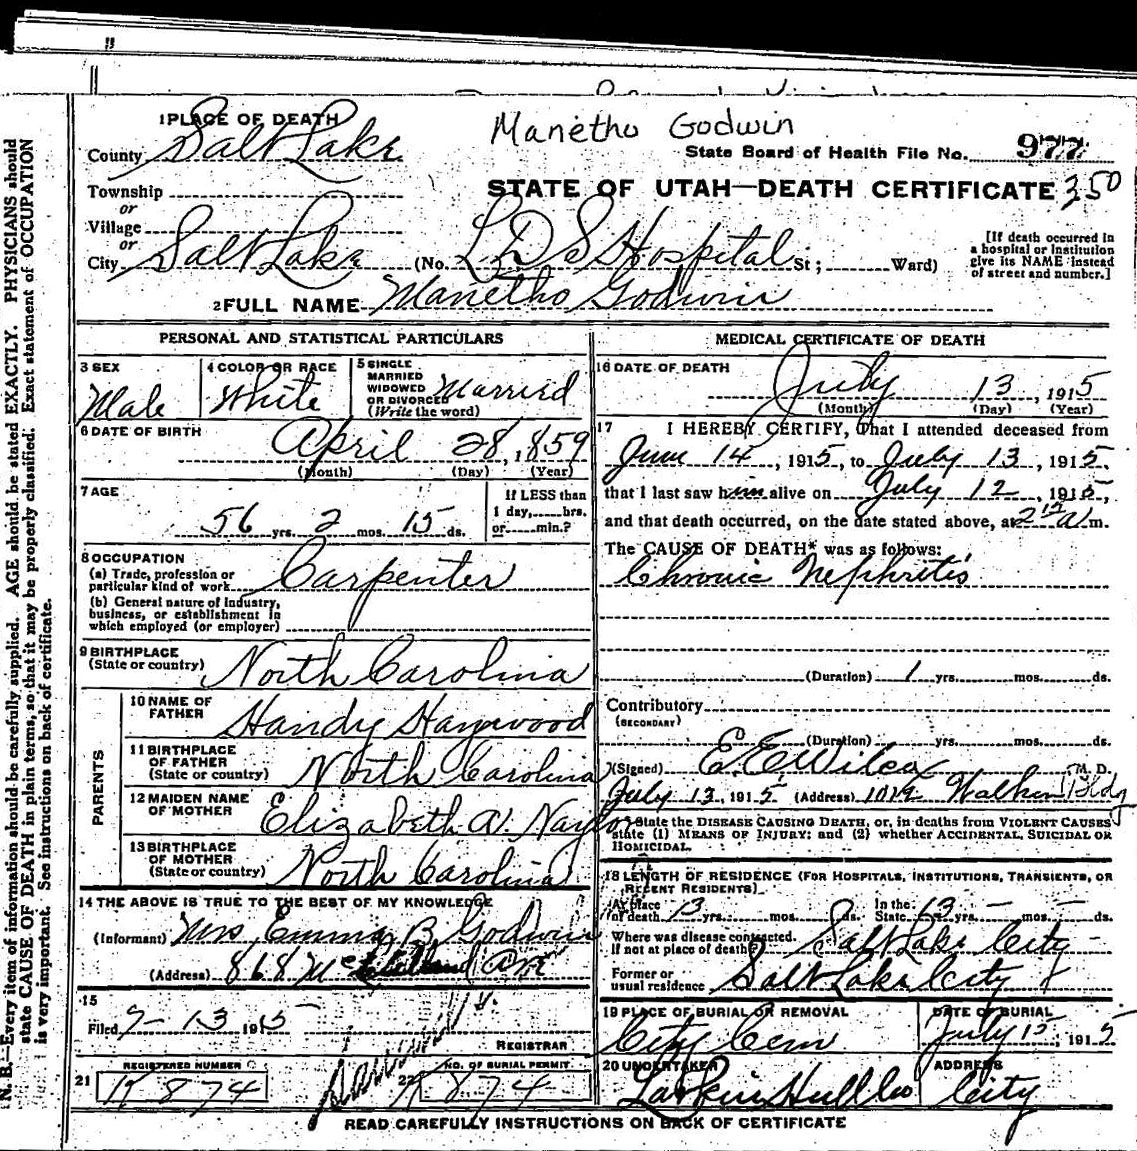 N. B.—Every item of information should be carefully supplied. AGE should be stated EXACTLY. PHYSICIANS should
state CAUSE OF DEATH in plain terms, so that it may be properly classified. Exact statement of OCCUPATION
is very important. See instructions on back of certificate.
Manetho Godwin
1 PLACE OF DEATH
County Salt Lake
State Board of Health File No. 977
STATE OF UTAH—DEATH CERTIFICATE 350
Township
or
Village
or
City Salt Lake (No. L D S Hospital St; Ward)
[If death occurred in
a hospital or institution
give its NAME instead
of street and number.]
2 FULL NAME Manetho Godwin
PERSONAL AND STATISTICAL PARTICULARS
3 SEX
Male
4 COLOR OR RACE
White
5 SINGLE
MARRIED
WIDOWED
OR DIVORCED
(Write the word)
Married
6 DATE OF BIRTH
April 28, 1859
(Month) (Day) (Year)
7 AGE
56 yrs. 2 mos. 15 ds.
If LESS than
1 day, hrs.
or min.?
8 OCCUPATION
(a) Trade, profession or
particular kind of work Carpenter
(b) General nature of industry,
business, or establishment in
which employed (or employer)
9 BIRTHPLACE
(State or country) North Carolina
PARENTS
10 NAME OF
FATHER Handy Haywood
11 BIRTHPLACE
OF FATHER
(State or country) North Carolina
12 MAIDEN NAME
OF MOTHER Elizabeth A. Naylor
13 BIRTHPLACE
OF MOTHER
(State or country) North Carolina
14 THE ABOVE IS TRUE TO THE BEST OF MY KNOWLEDGE
(Informant) Mrs Emma B Godwin
(Address) 868 McClelland Ave
15
Filed 7-13 1915
REGISTRAR
21
REGISTERED NUMBER
K 874
22
NO. OF BURIAL PERMIT
K 874
MEDICAL CERTIFICATE OF DEATH
16 DATE OF DEATH
July 13, 1915
(Month) (Day) (Year)
17 I HEREBY CERTIFY, That I attended deceased from
June 14, 1915, to July 13, 1915.
that I last saw him alive on July 12, 1915,
and that death occurred, on the date stated above, at 2 15 a m.
The CAUSE OF DEATH* was as follows:
Chronic Nephritis
(Duration) 1 yrs. mos. ds.
Contributory
(SECONDARY)
(Duration) yrs. mos. ds.
(Signed) E. E. Wilcox M. D.
July 13, 1915. (Address) 1019 Walker Bldg
*State the DISEASE CAUSING DEATH, or, in deaths from VIOLENT CAUSES
state (1) MEANS OF INJURY; and (2) whether ACCIDENTAL, SUICIDAL OR
HOMICIDAL.
18 LENGTH OF RESIDENCE (FOR HOSPITALS, INSTITUTIONS, TRANSIENTS, OR
RECENT RESIDENTS)
At place
of death 13 yrs. mos. ds. In the
State 13 yrs. - mos. - ds.
Where was disease contracted.
If not at place of death? Salt Lake City -
Former or
usual residence Salt Lake City
19 PLACE OF BURIAL OR REMOVAL
City Cem
DATE OF BURIAL
July 15, 1915
20 UNDERTAKER
Larkin Hull Co
ADDRESS
City
READ CAREFULLY INSTRUCTIONS ON BACK OF CERTIFICATE